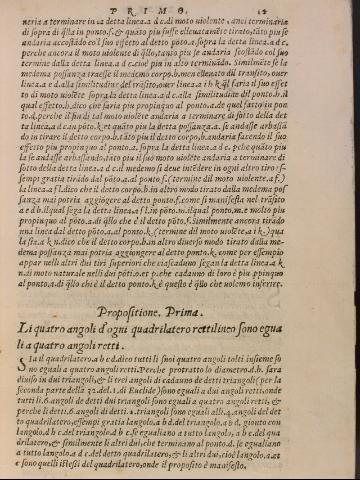 PRIMO. 12
neria a terminare in la detta linea.a d c.di moto uiolente, anci terminaria
di sopra di q̃lla in ponto.f. & quãto piu fusse elleuatamẽte tirato,tãto piu se
andaria accostãdo cõl suo effetto al detto põto.a.sopra la detta linea.a d c,
perche ancora il moto uiolente di q̃llo,tanto piu se andaria scostãdo cõl suo
termine dalla detta linea.a d c.cioè piu in alto terminãdo. Similmẽte se la
medema possanza traesse il medemo corpo.b.men elleuato dil trãsito, ouer
linea.a e d.alla similitudine del trãsito,ouer linea.a i h k.q̃l faria il suo effet
to di moto uiolẽte sopra la detta linea.a d c.alla similitudine dil ponto.h.il
qual effetto.h.dico che saria piu propinquo al ponto.a.de quel fatto in pon
to.d.perche il fin di tal moto uiolẽte andaria a terminare di sotto della det
ta linea,a d c.in põto.k.et quãto piu la detta possanza.a. se andasse arbassã
do in tirare il detto corpo.b.tãto piu il detto corpo.b.andaria facendo il suo
effetto piu propinquo al ponto.a. sopra la detta linea.a d c. pche quãto piu
la se andasse arbassando,tãto piu il suo moto uiolẽte andaria a terminare di
sotto della detta linea.a d c.il medemo si deue intẽdere in ogni altro tiro es
sempi gratia tirãdo dal põto.a.al ponto.f.( termine dil moto uiolente.a f.)
la linea.a f l.dico che il detto corpo.b.in altro modo tirato dalla medema pos
sanza mai potria aggiõgere al detto ponto.f.come si manifesta nel trãsito
a e d b.ilqual sega la detta linea.a f l.in põto.m.ilqual ponto.m.e molto piu
propinquo al põto.a.di q̃llo che è il detto põto.f.Similmente ancora tirãdo
una linea dal detto põto.a.al ponto.k.( termine dil moto uiolẽte.a i k.) qua
la sia.a k n.dico che il corpo.b.in altro diuerso modo tirato dalla mede-
ma possanza mai potria aggiongere al detto ponto.k. come per essempio
appar nelli altri dui tiri superiori che ciascaduno segan la detta linea.a k
n.di moto naturale nelli doi põti.o.et p.che cadauno di loro è piu ppinquo
al ponto.a.di q̃llo chi è il detto ponto.k è questo è q̃llo che uolemo inferire.
Propositione. Prima.
Li quatro angoli d'ogni quadrilatero rettilineo sono egua
li a quatro angoli retti.
SIa il quadrilatero.a b c d.dico tutti li suoi quatro angoli tolti insieme so
no eguali a quatro angoli retti.Perche protratto lo diametro.d b. sara
diuiso in dui triangoli,& li trei angoli di cadauno de detti triangoli( per la
seconda parte della 32.del.1.di Euclide )sono eguali a dui angoli retti,onde
tutti li.6.angoli de detti dui triangoli sono eguali a quatro angoli retti, &
perche li detti.6.angoli di detti.2.triangoli sono eguali alli.4.angoli del det
to quadrilatero,essempi gratia langolo.a b d.del triangolo.a b d, gionto con
langolo.d b c.del triangolo.d b c.se egualiano a tutto langolo, a b c.del qua
drilatero,& similmente li altri dui,che terminano al ponto.d. se egualiano
a tutto langolo.a d c.del detto quadrilatero,& li altri dui,cioè langolo.a.et
c sono quelli istessi del quadrilatero,onde il proposito è manifesto.